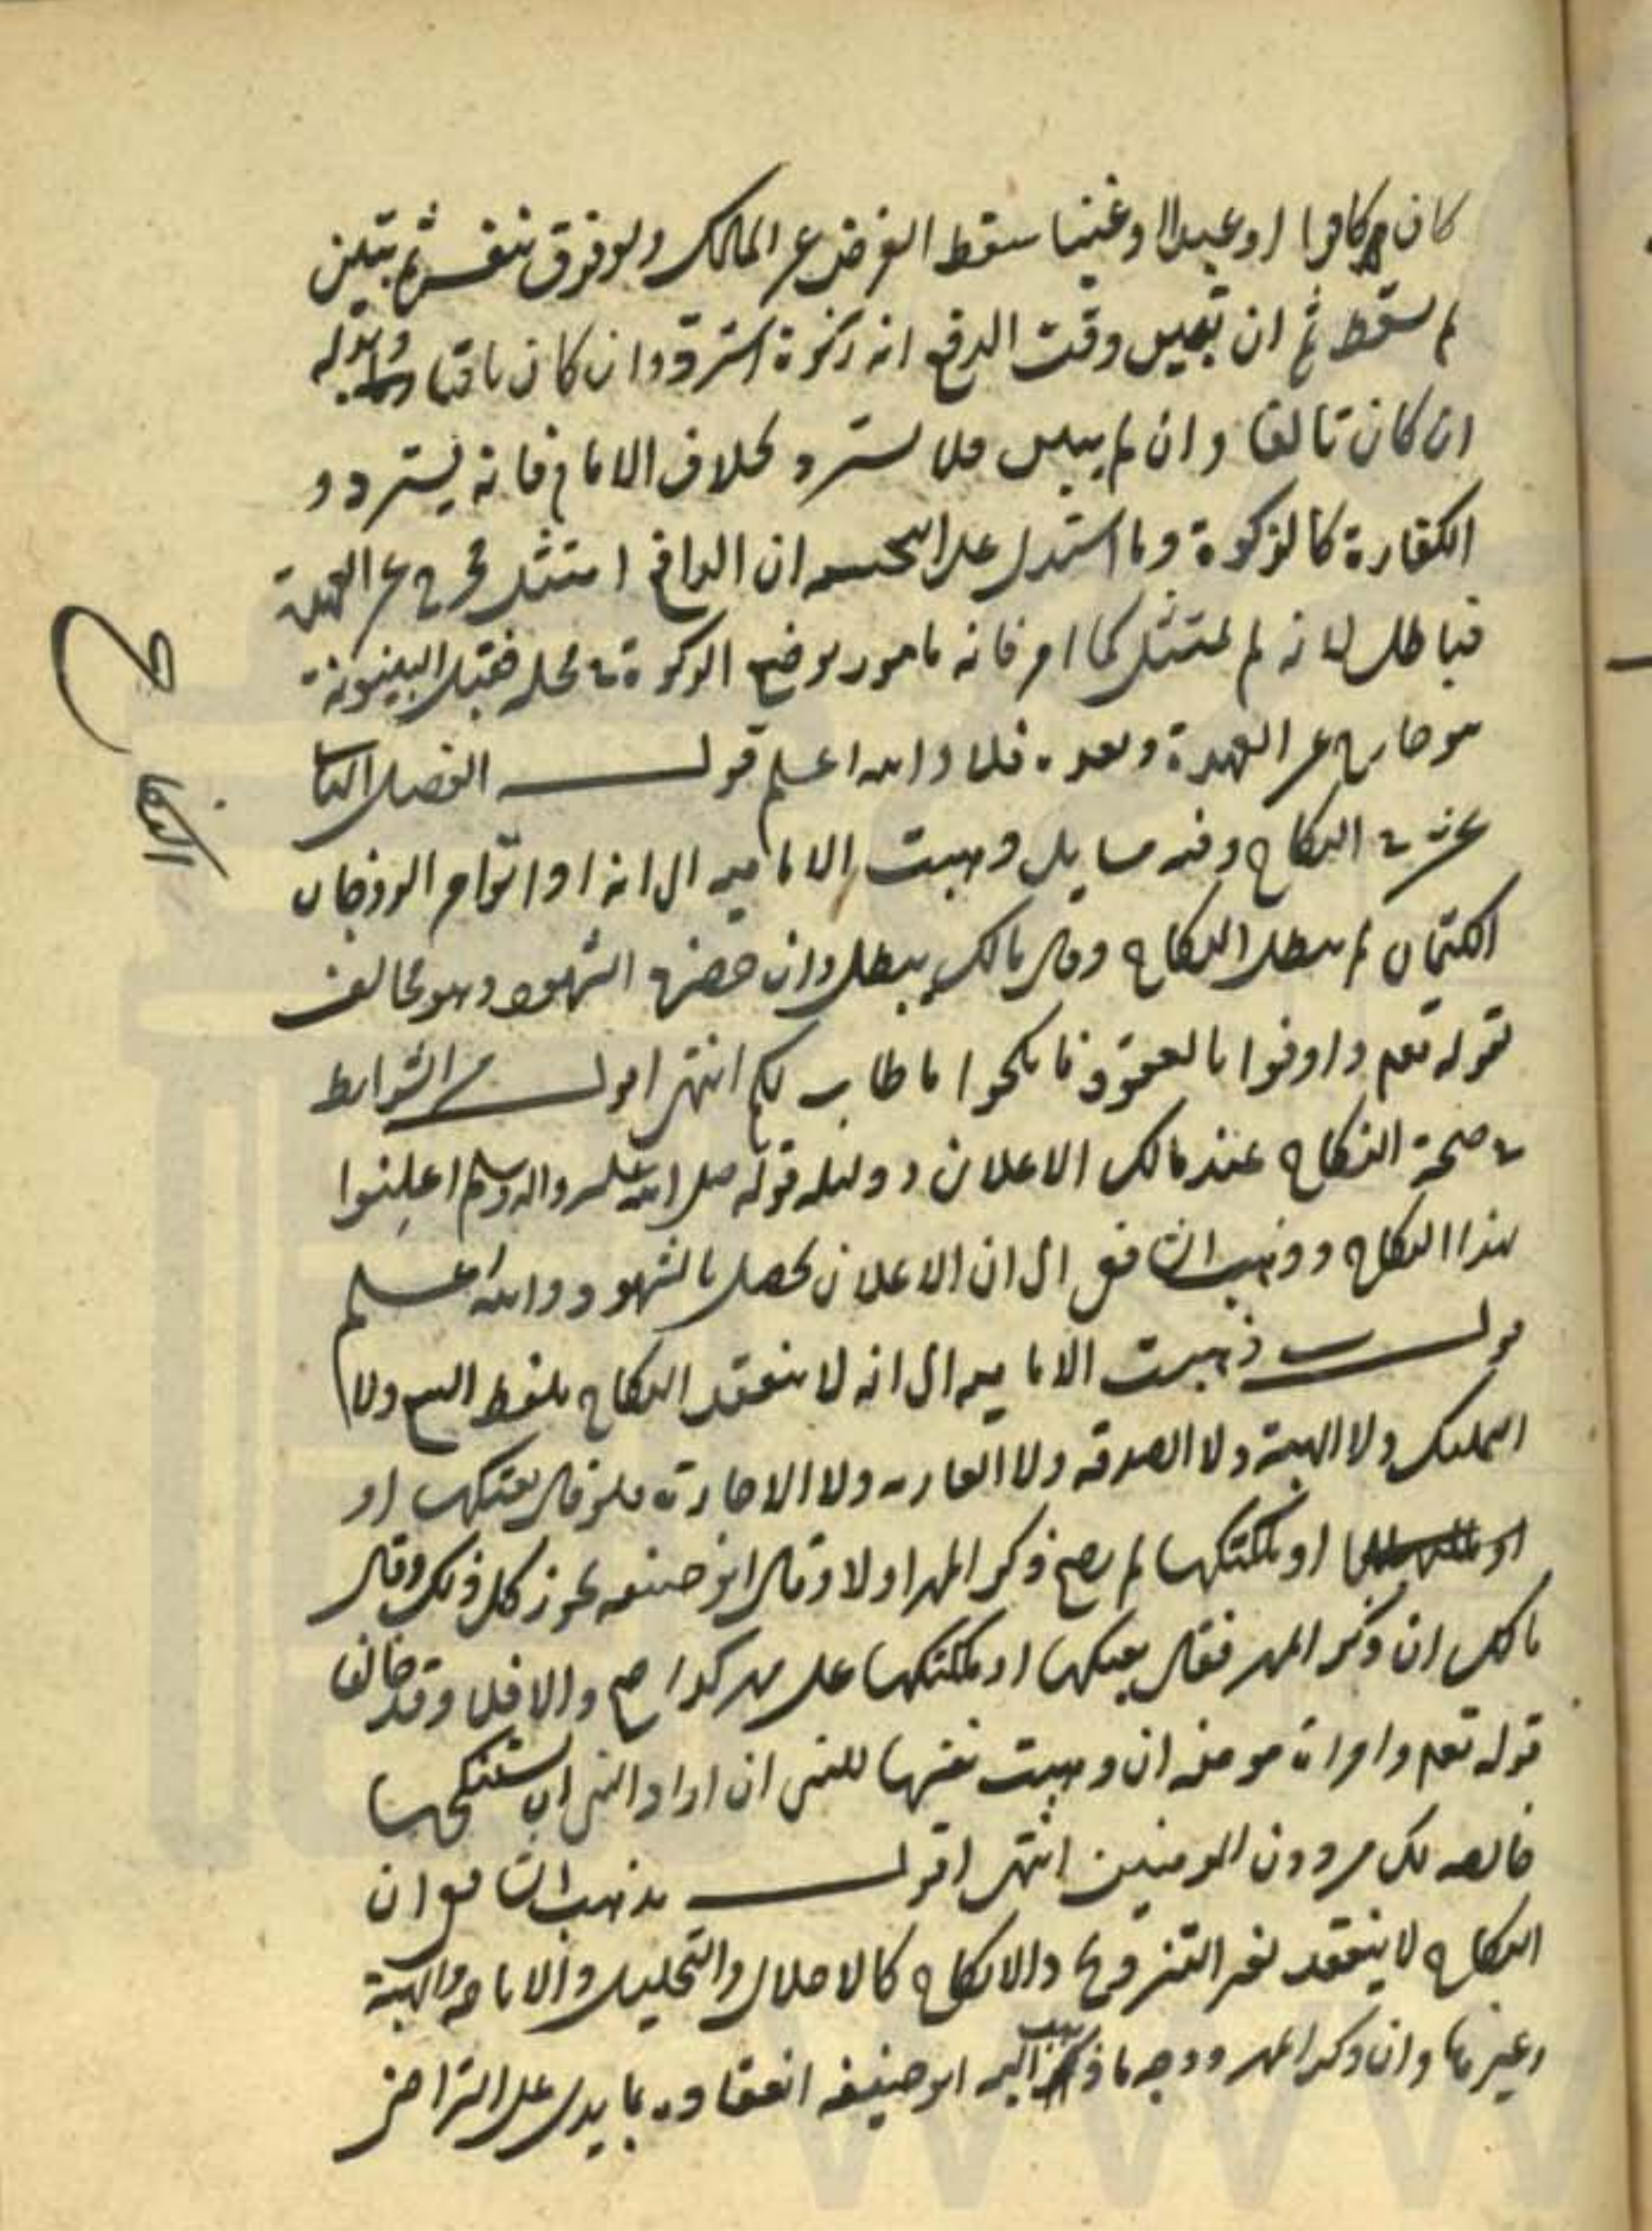 كان كافرا او عبدا او غنيا سقط الفرض عن المالك ولو فرق بنفسه ثم تبين
لم يسقط ثم ان بين وقت الدفع انه زكوة استرد وان كان باقيا وبدله
ان كان تالفا وان لم يبين فلا يسترد بخلاف الامام فانه يسترد و
الكفارة كالزكوة وما استدل على ان الدافع امتثل فخرج عن العهدة
فباطل لانه لم يمتثل كما امر فانه مامور بوضع الزكوة في محله فقبل البينونة
هو خارج عن العهدة وبعده فلا والله اعلم قولـــه الفصل الثا
عشر في النكاح وفيه مسايل ذهبت الامامية الى انه اذا تواصى الزوجان
الكتمان لم يبطل النكاح وقال مالك يبطل وان حضره الشهود وهو مخالف
لقوله تعم واوفوا بالعقود فانكحوا ما طاب لكم انتهى اقولـــ من الشرايط
في صحة النكاح عند مالك الاعلان ودليله قوله صلى الله عليه واله وسلم اعلنوا
هذا النكاح وذهب الشافعي الى ان الاعلان يحصل بالشهود والله اعلم
قولـــه ذهبت الامامية الى انه لا ينعقد النكاح بلفظ البيع ولا
التمليك ولا الهبة ولا الصدقه ولا العاريه ولا الاجارة فلو قال بعتكها او
او ملكتكها لم يصح ذكر المهر اولا وقال ابو حنيفه يجوز كل ذلك وقال
مالك ان ذكر المهر فقال بعتكها او ملكتكها على مهر كذا صح والا فلا وقد خالفا
قوله تعم وامراة مومنه ان وهبت نفسها للنبي ان اراد النبي ان يستنكحها
خالصه لك من دون المومنين انتهى اقولـــ مذهب الشافعي ان
النكاح لا ينعقد بغير التزويج والانكاح كالاحلال والتحليل والاباحه والهبة
وغيرها وان ذكر المهر ووجه ما ذهب اليه ابو حنيفه انعقاده بما يدل على التراضي
النكاح